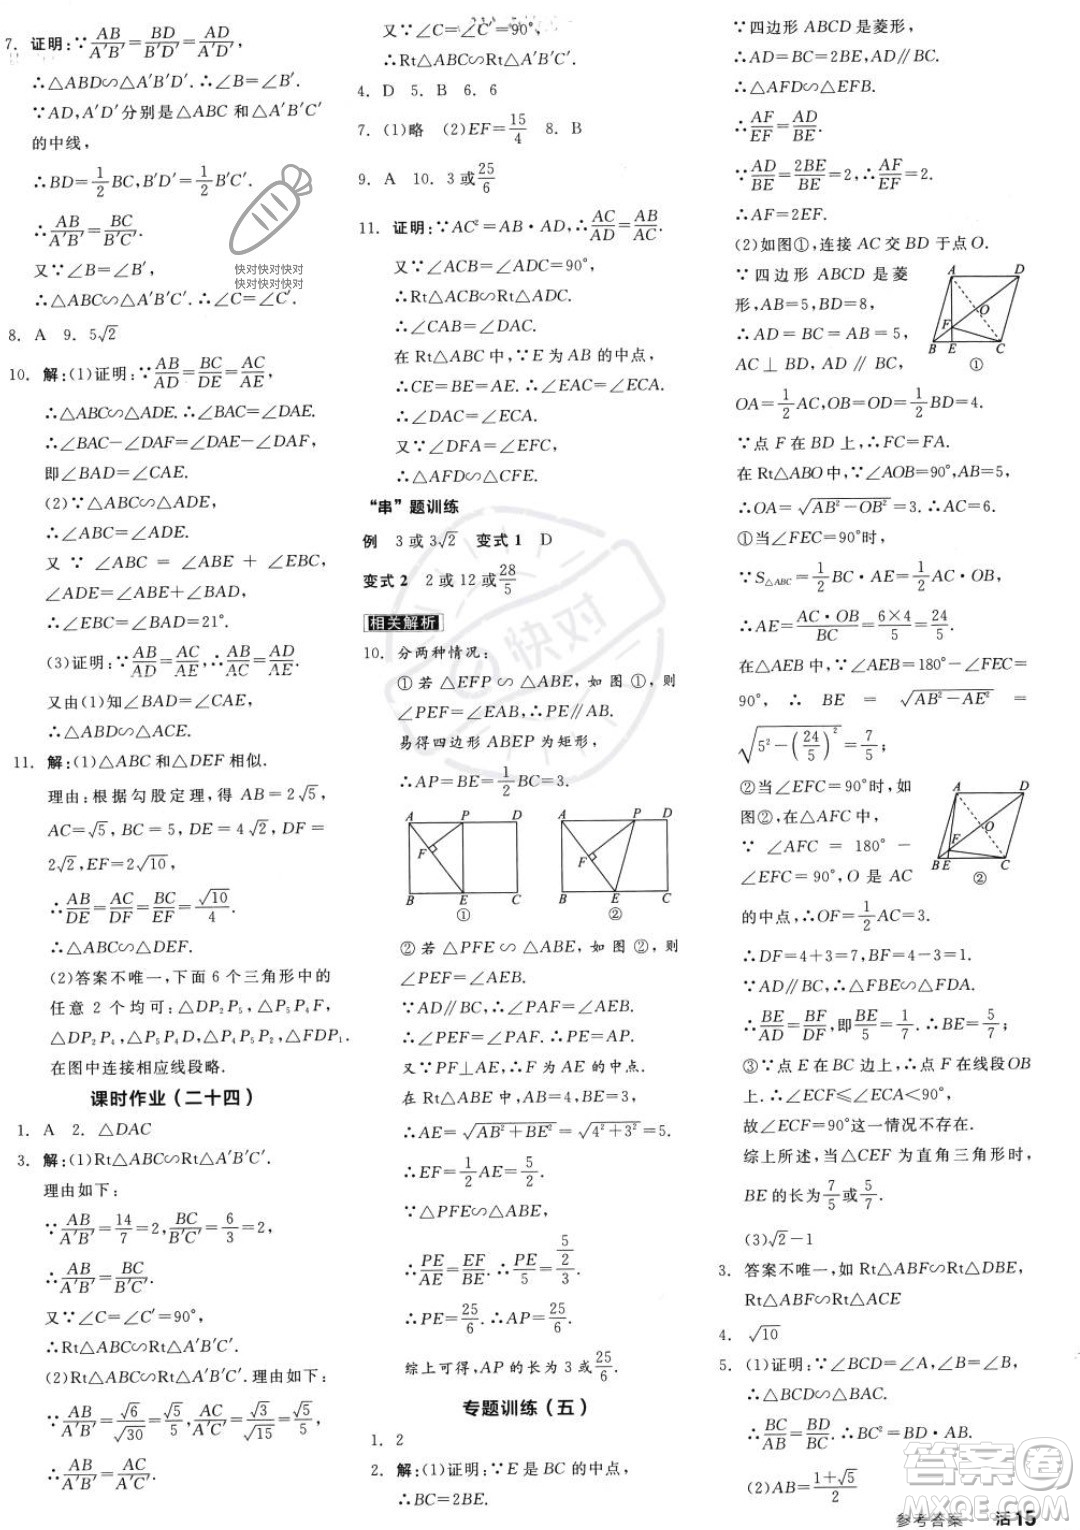 7. 证明:∵AB/A′B′=BD/B′D′=AD/A′D′,
∴△ABD∽△A′B′D′.∴∠B=∠B′.
∵AD,A′D′分别是△ABC和△A′B′C′
的中线,
∴BD=1/2BC,B′D′=1/2B′C′.
∴AB/A′B′=BC/B′C′.
又∵∠B=∠B′,
∴△ABC∽△A′B′C′.∴∠C=∠C′.
快对快对快对
快对快对快对
8. A 9. 5√2
10. 解:(1)证明:∵AB/AD=BC/DE=AC/AE,
∴△ABC∽△ADE.∴∠BAC=∠DAE.
∴∠BAC-∠DAF=∠DAE-∠DAF,
即∠BAD=∠CAE.
(2)∵△ABC∽△ADE,
∴∠ABC=∠ADE.
又∵∠ABC=∠ABE+∠EBC,
∠ADE=∠ABE+∠BAD,
∴∠EBC=∠BAD=21°.
(3)证明:∵AB/AD=AC/AE,∴AB/AC=AD/AE.
又由(1)知∠BAD=∠CAE,
∴△ABD∽△ACE.
11. 解:(1)△ABC和△DEF相似.
理由:根据勾股定理,得AB=2√5,
AC=√5,BC=5,DE=4√2,DF=
2√2,EF=2√10,
∴AB/DE=AC/DF=BC/EF=√10/4.
∴△ABC∽△DEF.
(2)答案不唯一,下面6个三角形中的
任意2个均可:△DP₂P₅,△P₅P₄F,
△DP₂P₄,△P₅P₄D,△P₂P₄P₅,△FDP₁.
在图中连接相应线段略.
课时作业(二十四)
1. A 2. △DAC
3. 解:(1)Rt△ABC∽Rt△A′B′C′.
理由如下:
∵AB/A′B′=14/7=2,BC/B′C′=6/3=2,
∴AB/A′B′=BC/B′C′.
又∵∠C=∠C′=90°,
∴Rt△ABC∽Rt△A′B′C′.
(2)Rt△ABC∽Rt△A′B′C′.理由如下:
∵AB/A′B′=√6/√30=√5/5,AC/A′C′=√3/√15=√5/5,
∴AB/A′B′=AC/A′C′.
又∵∠C=∠C′=90°,
∴Rt△ABC∽Rt△A′B′C′.
4. D 5. B 6. 6
7. (1)略 (2)EF=15/4 8. B
9. A 10. 3或25/6
11. 证明:∵AC²=AB·AD,∴AC/AD=AB/AC.
又∵∠ACB=∠ADC=90°,
∴Rt△ABC∽Rt△ACD.
∴∠CAB=∠DAC.
在Rt△ABC中,∵E为AB的中点,
∴CE=BE=AE,∴∠EAC=∠ECA.
∴∠DAC=∠ECA.
又∵∠DFA=∠EFC,
∴△AFD∽△CFE.
“串”题训练
例 3或3√2 变式1 D
变式2 2或12或28/5
相关解析
10. 分两种情况:
①若△EFP∽△ABE,如图①,则
∠PEF=∠EAB,∴PE∥AB.
易得四边形ABEP为矩形,
∴AP=BE=1/2BC=3.
A P D
F
B E C
①
A P D
F
B E C
②
②若△PFE∽△ABE,如图②,则
∠PEF=∠AEB.
∵AD∥BC,∴∠PAF=∠AEB.
∴∠PEF=∠PAF.∴PE=PA.
又∵PF⊥AE,∴F为AE的中点.
在Rt△ABE中,AB=4,BE=3,
∴AE=√AB²+BE²=√4²+3²=5.
∴EF=1/2AE=5/2.
∵△PFE∽△ABE,
∴PE/AE=EF/BE.∴PE/5=(5/2)/3.
∴PE=25/6.∴AP=25/6.
综上可得,AP的长为3或25/6.
专题训练(五)
1. 2
2. 解:(1)证明:∵E是BC的中点,
∴BC=2BE.
∵四边形ABCD是菱形,
∴AD=BC=2BE,AD∥BC.
∴△AFD∽△EFB.
∴AF/EF=AD/BE.
∵AD/BE=2BE/BE=2,∴AF/EF=2.
∴AF=2EF.
(2)如图①,连接AC交BD于点O.
∵四边形ABCD是菱
形,AB=5,BD=8,
∴AD=BC=AB=5,
AC⊥BD,AD∥BC,
A D
O
F
B E C
①
OA=1/2AC,OB=OD=1/2BD=4.
∵点F在BD上,∴FC=FA.
在Rt△AOB中,∵∠AOB=90°,AB=5,
∴OA=√AB²-OB²=3.∴AC=6.
①当∠FEC=90°时,
∵S△ABC=1/2BC·AE=1/2AC·OB,
∴AE=AC·OB/BC=6×4/5=24/5.
在△AEB中,∵∠AEB=180°-∠FEC
=90°,∴BE=√AB²-AE²=
√5²-(24/5)²=7/5;
②当∠EFC=90°时,如
图②,在△AFC中,
∵∠AFC=180°-
∠EFC=90°,O是AC
A D
O
F
B E C
②
的中点,∴OF=1/2AC=3.
∴DF=4+3=7,BF=4-3=1.
∵AD∥BC,∴△FBE∽△FDA.
∴BE/AD=BF/DF,即BE/5=1/7.∴BE=5/7;
③∵点E在BC边上,∴点F在线段OB
上.∴∠ECF≤∠ECA<90°,
故∠FCE=90°这一情况不存在.
综上所述,当△CEF为直角三角形时,
BE的长为7/5或5/7.
(3)√2-1
3. 答案不唯一,如Rt△ABF∽Rt△DBE,
Rt△ABF∽Rt△ACE
4. √10
5. (1)证明:∵∠BCD=∠A,∠B=∠B,
∴△BCD∽△BAC.
∴BC/AB=BD/BC.∴BC²=AB·BD.
(2)AB=(1+√5)/2
快对
答案圈
MXQE.COM
参考答案 活15